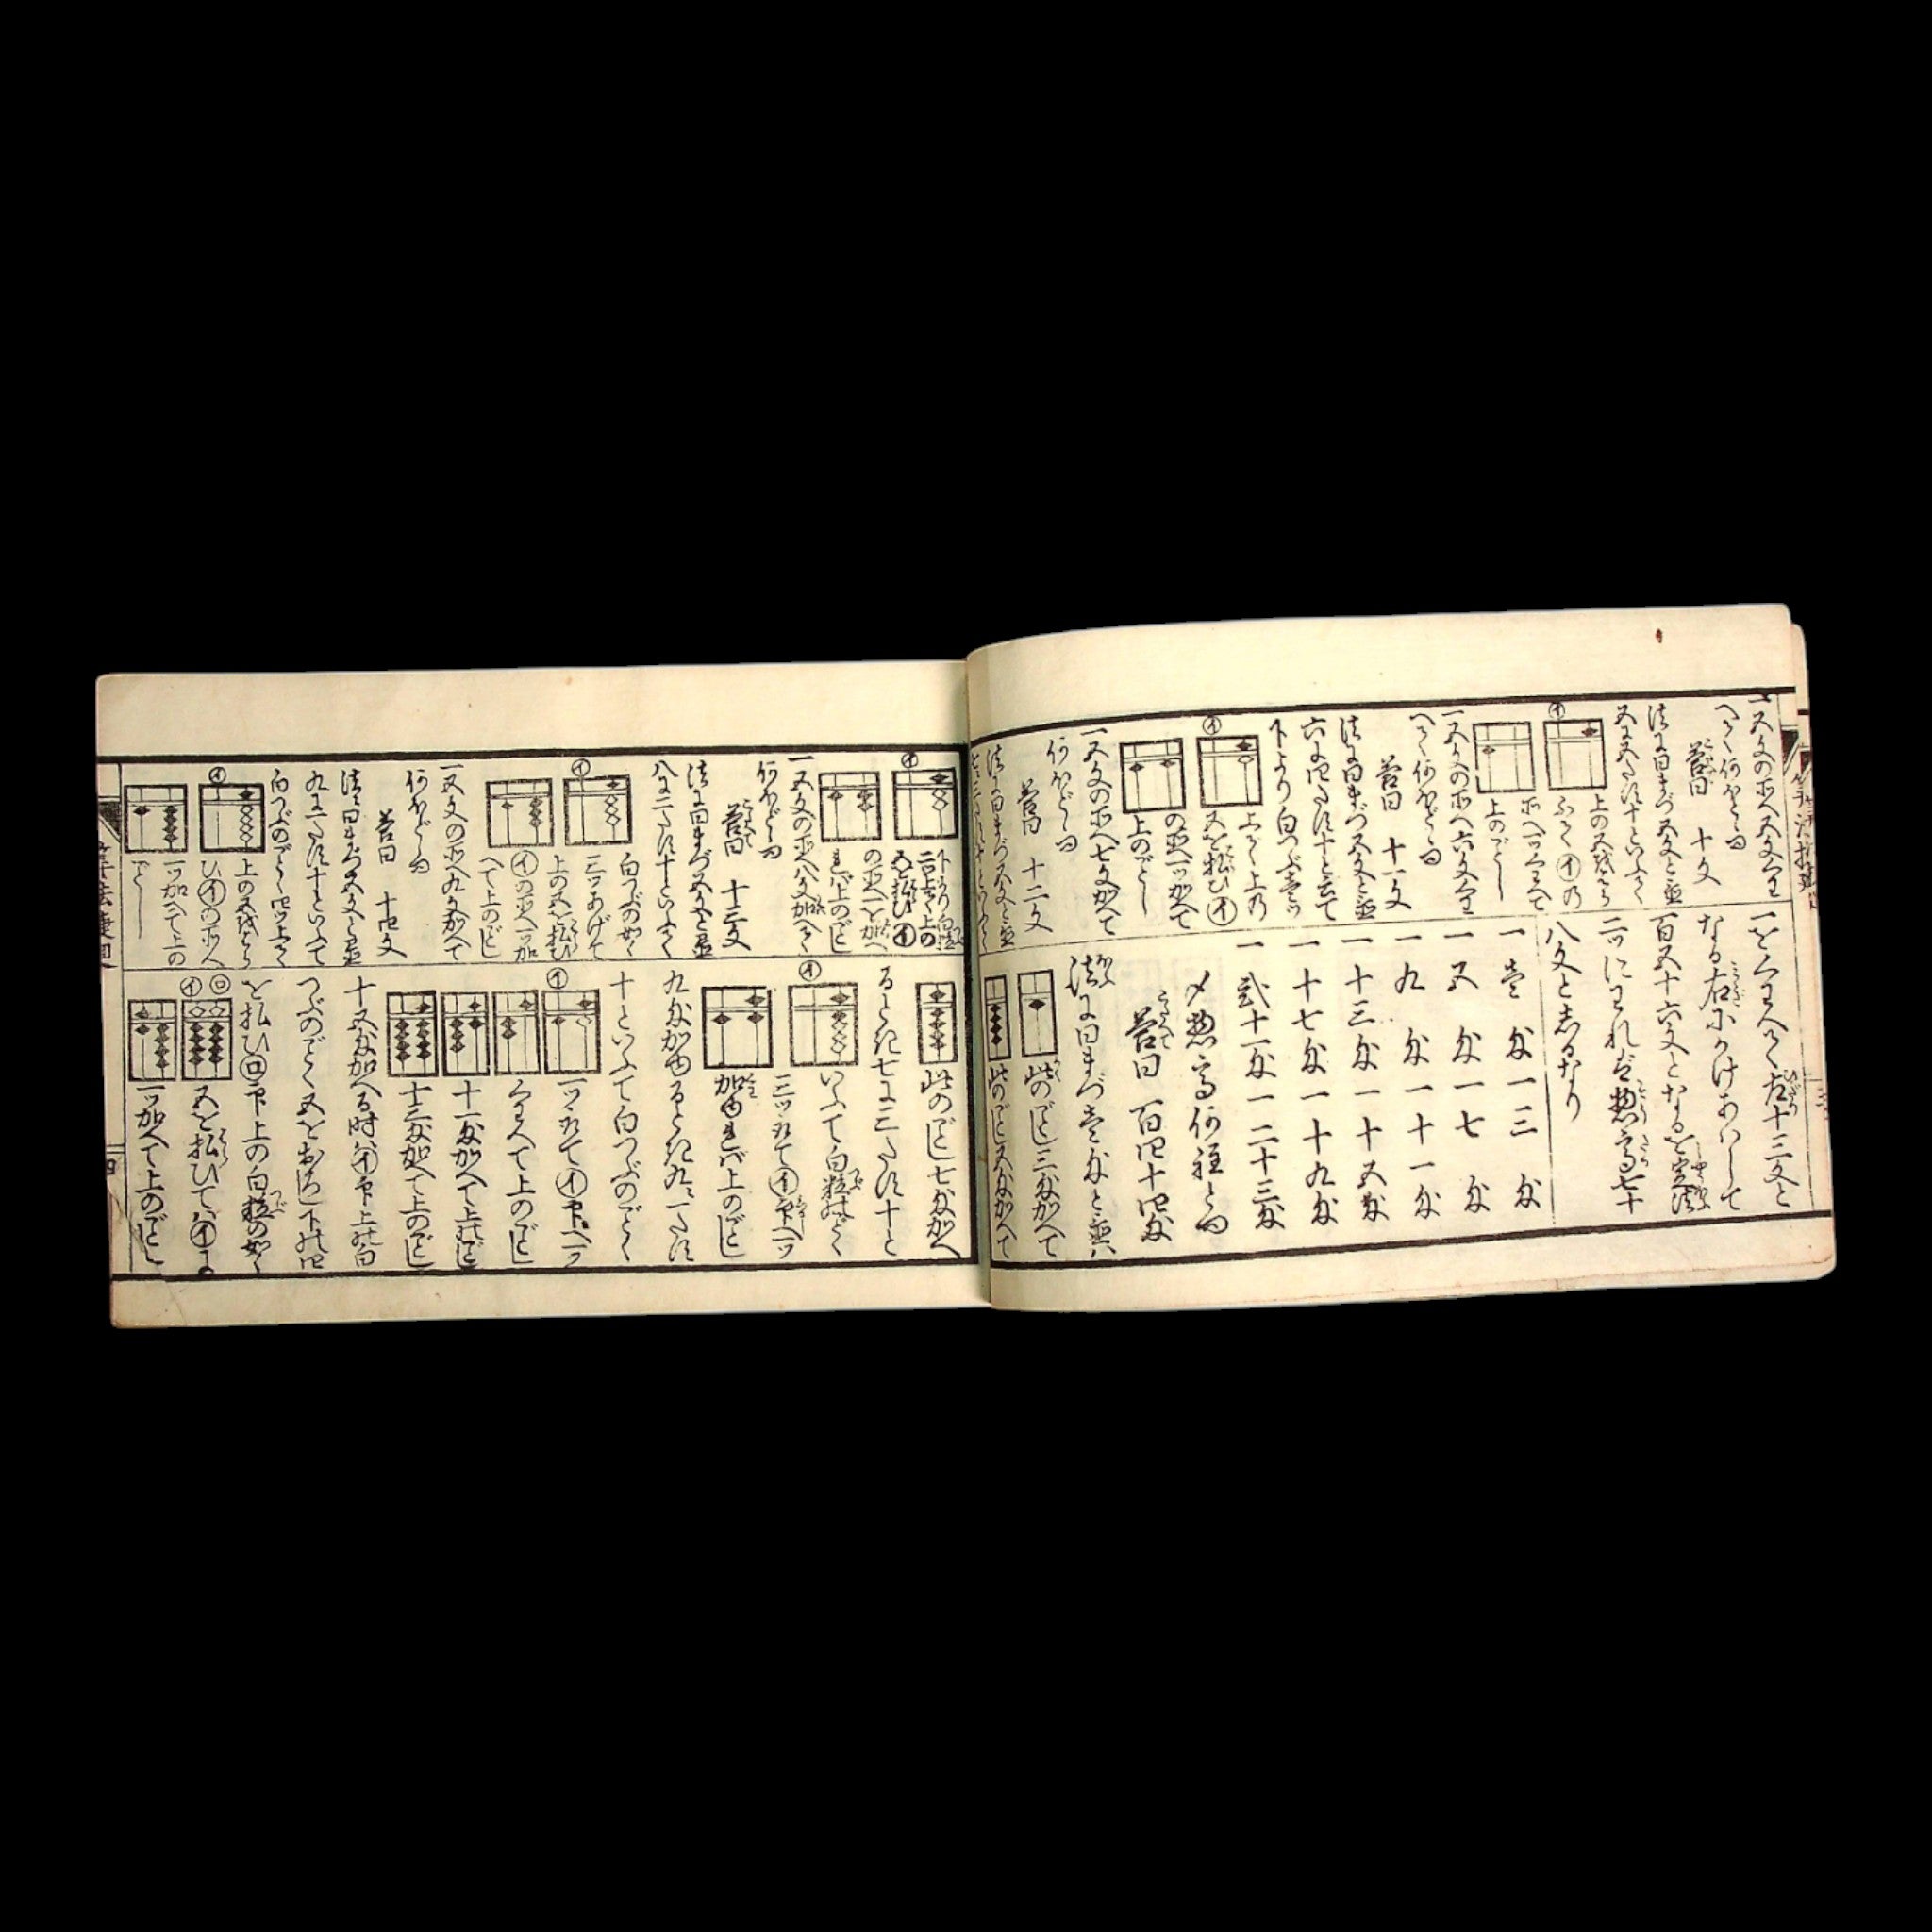 一五文の所へ五文くわ
へて何ほどゝ問
答曰　十文
法に曰まづ五文と置
五に五たす十といふて
上の五をはらふて㋑の
所へ一ツくわへて
上のごとし
一五文の所へ六文くわ
へて何ほどゝ問
答曰　十一文
法に曰まづ五文と置
六に四たす十と云て
下より白つぶ壱ツ
上て上の
五を払ひ㋑
の所へ一ツ加へて
上のごとし
一五文の所へ七文加へて
何ほどゝ問
答曰　十二文
法に曰まづ五文と置
左十三文と
なる右にかけあはして
百五十六文となるを
二ツにわれば惣高七十
八文としるなり
一壱匁　一三匁
一五匁　一七匁
一九匁　一十一匁
一十三匁　一十五匁
一十七匁　一十九匁
一弐十一匁　一二十三匁
〆惣高何程と問
答曰　百四十四匁
法に曰まづ壱匁と置ハ
此のごとし三匁加へて
此のごとし五匁加へて
の所へ一を加へ
れバ上のごとし
一五文の所へ八文加へて
何ほどゝ問
答曰　十三文
法に曰まづ五文と置
八に二たす十といふて
白つぶの如く
三ツあげて
上の五を払ひ
㋑の所へ一ツ加
へて上のごとし
一五文の所へ九文加へて
何ほどゝ問
答曰　十四文
法に曰まづ五文と置
九に一たす十といへて
白つぶのごとく四ツ上て
上の五をはら
ひ㋑の所へ
一ツ加へて上の
ごとし
此のごとし七匁加へ
るとき七に三たす十と
いふて白粒のごとく
三ツ取て㋑印へ一ツ
加ゆれバ上のごとし
九匁加ゆるとき九ニ一たす
十といふて白つぶのごとく
一ツ取て㋑印へ一ツ
くわへて上のごとし
十一匁加へて上のごとし
十三匁加へて上のごとし
十五匁加へる時㋑印上の白
つぶのごとく五をおろし下の四
を払ひ㋺印上の白粒の如く
五を払ひて㋑に
一ツ加へて上のごとし